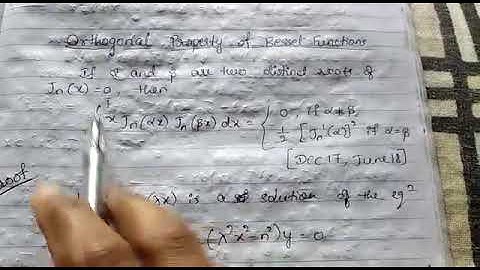 Orthogonal Property of Bessel Functions
If α and β are two distinct roots of
Jn(x) = 0, then
∫ x Jn(αx) Jn(βx) dx = { 0, if α ≠ β
1/2 [Jn'(α)]² if α = β
[DEC 17, June 18]
(λx) is a solution of the eq²
(λ²x² - n²)y = 0